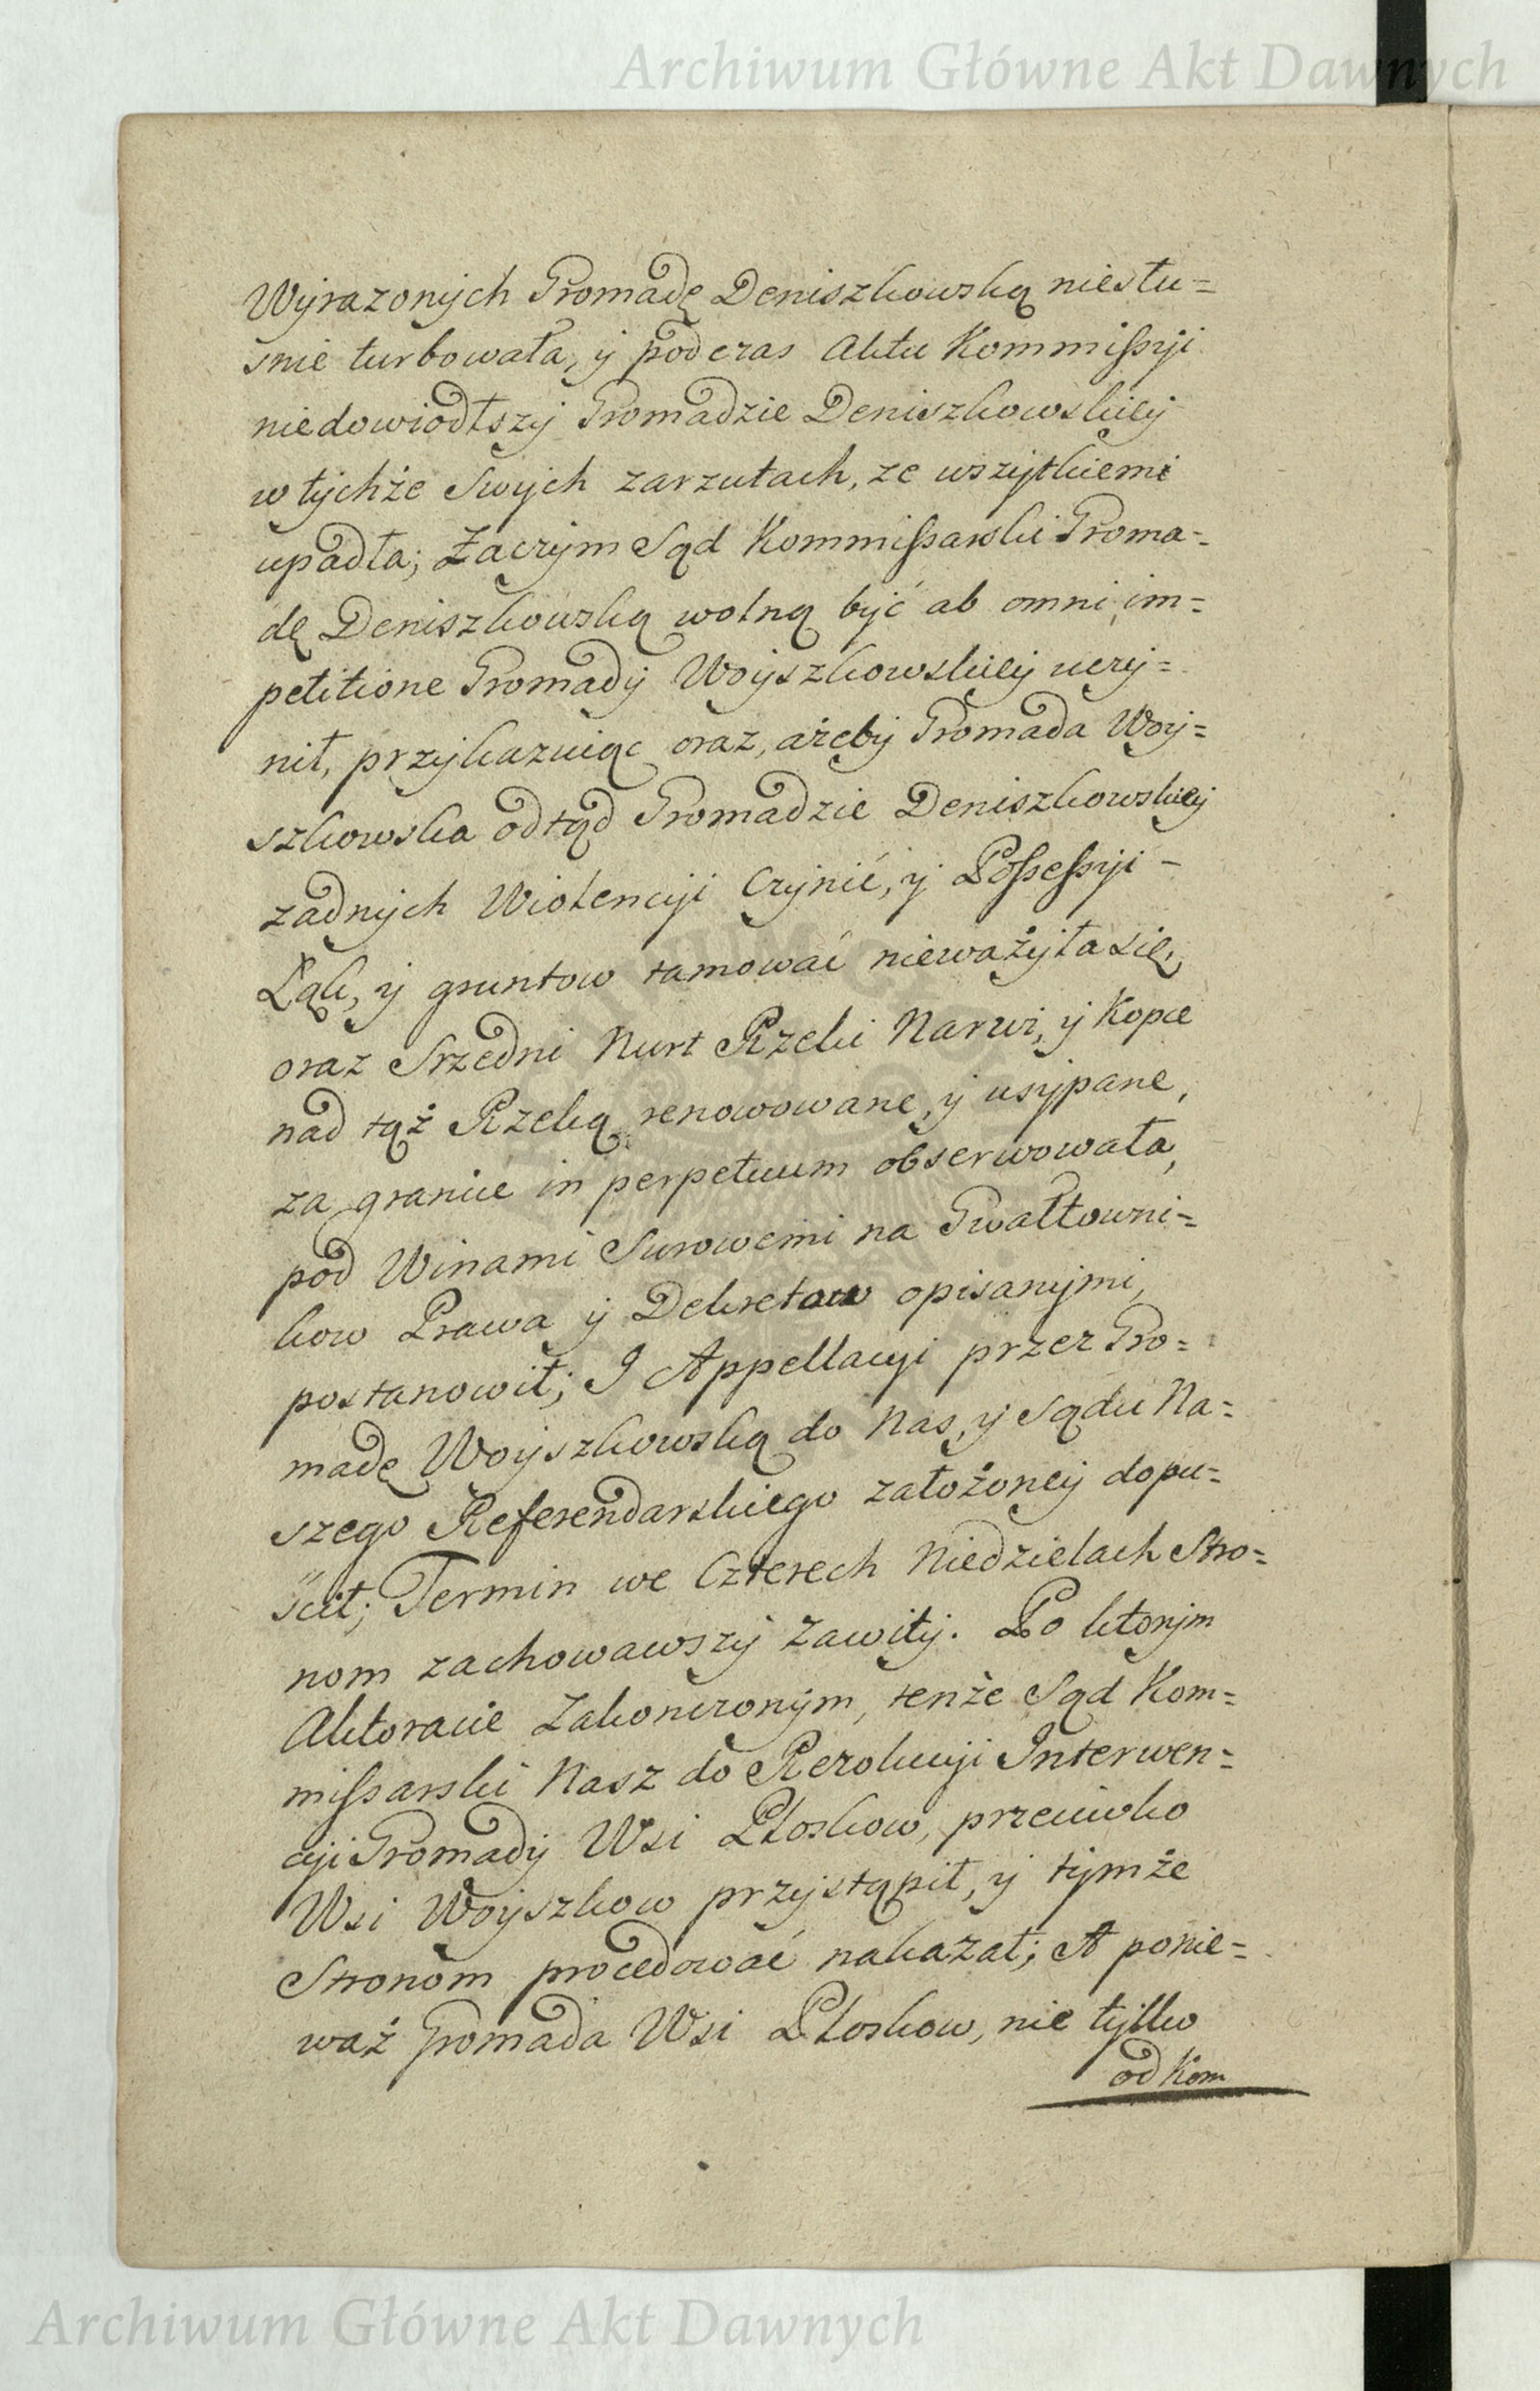 Archiwum Główne Akt Dawnych
Wyrazonych Gromadę Deniszkowską niesłu=
snie turbowała, y podczas Aktu Kommissyi
niedowiodłszy Gromadzie Deniszkowskiey
w tychże Swych zarzutach, ze wszytkiemi
upadła; Zaczym Sąd Kommissarski Groma=
dę Deniszkowską wolną być ab omni im=
petitione Gromady Woyszkowskiey uczy=
nił, przykazuiąc oraz, ażeby Gromada Woy=
szkowska odtąd Gromadzie Deniszkowskiey
zadnych Wiolencyi Czynić, y Possessyi -
Łąk, y gruntow tamować nieważyła się,
oraz Srzedni Nurt Rzeki Narwi, y Kopce
nad tąż Rzeką renowowane, y usypane,
za granice in perpetuum obserwowała,
pod Winami Surowemi na Gwałtowni=
kow Prawa y Dekretow opisanymi,
postanowił; I Appellacyi przez Gro=
madę Woyszkowską do Nas, y Sądu Na=
szego Referendarskiego założoney dopu=
scił; Termin we Czterech Niedzielach Stro=
nom zachowawszy Zawity. Po ktorym
Aktoracie Zakonczonym, tenże Sąd Kom=
missarski Nasz do Rezolucyi Interwen=
cyi Gromady Wsi Płoskow, przeciwko
Wsi Woyszkow przystąpił, y tymże
Stronom procedować nakazał; A ponie=
waż Gromada Wsi Płoskow, nie tylko
od Kom
Archiwum Główne Akt Dawnych